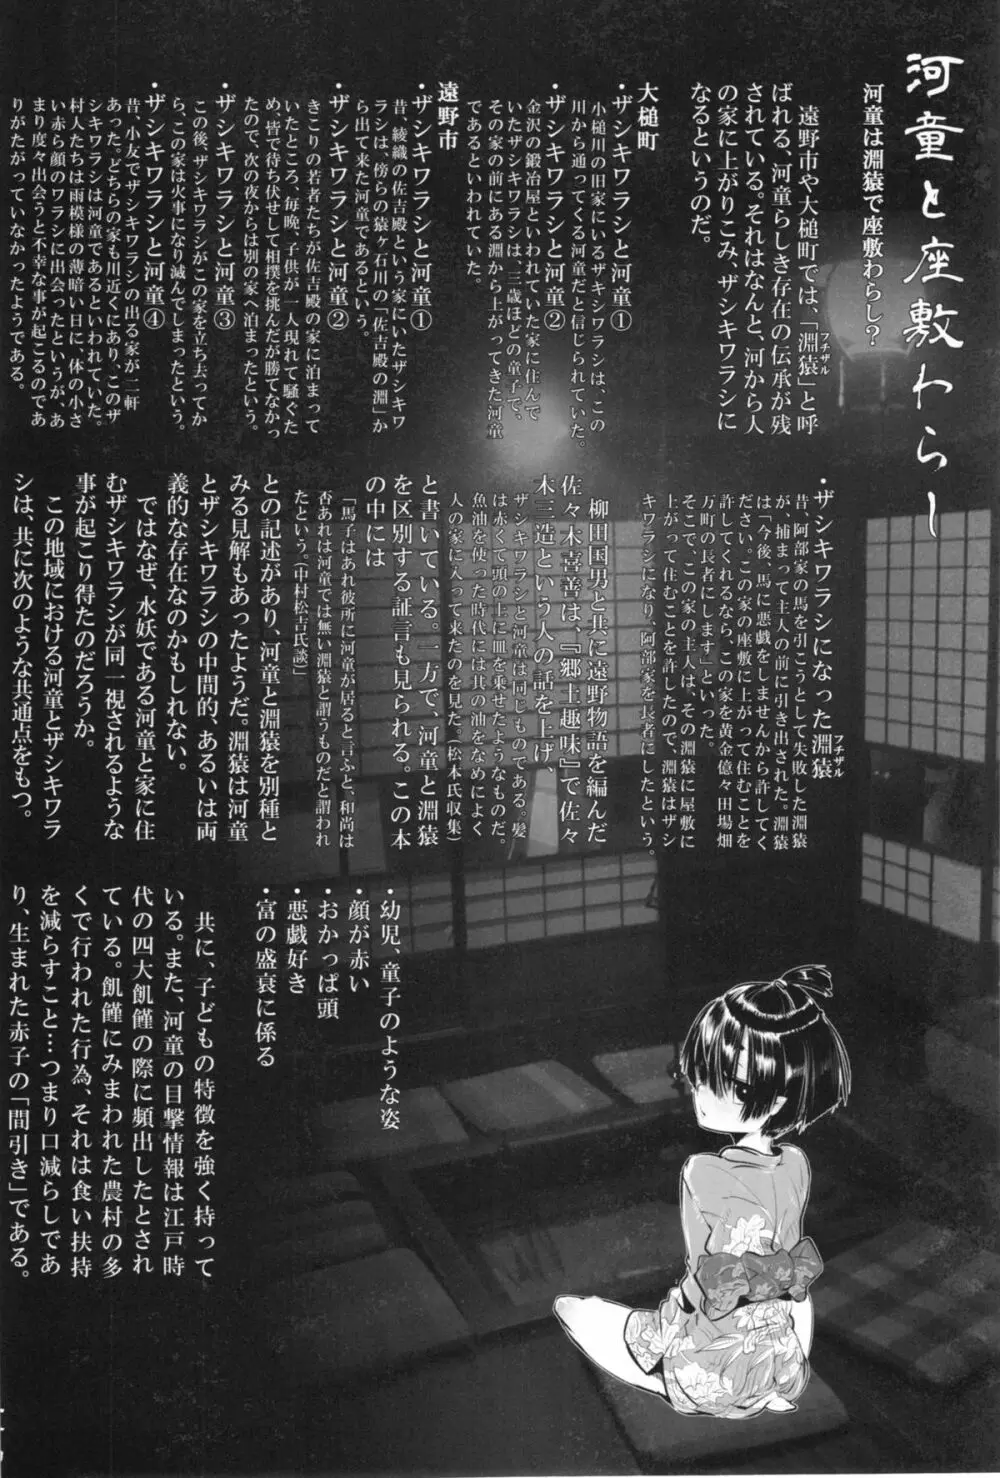 河童と座敷わらし
河童は淵猿で座敷わらし？
遠野市や大槌町では、「淵猿」と呼
フチザル
ばれる、河童らしき存在の伝承が残
されている。それはなんと、河から人
の家に上がりこみ、ザシキワラシに
なるというのだ。
大槌町
・ザシキワラシと河童①
小槌川の旧家にいるザキシワラシは、この
川から通ってくる河童だと信じられていた。
・ザシキワラシと河童②
金沢の鍛冶屋といわれていた家に住んで
いたザシキワラシは、三歳ほどの童子で、
その家の前にある淵から上がってきた河童
であるといわれていた。
遠野市
・ザシキワラシと河童①
昔、綾織の佐吉殿という家にいたザシキワ
ラシは、傍らの猿ヶ石川の「佐吉殿の淵」か
ら出て来た河童であるという。
・ザシキワラシと河童②
きこりの若者たちが佐吉殿の家に泊まって
いたところ、毎晩、子供が一人現れて騒ぐた
め、皆で待ち伏せして相撲を挑んだが勝てなかっ
たので、次の夜からは別の家へ泊まったという。
・ザシキワラシと河童③
この後、ザシキワラシがこの家を立ち去ってか
ら、この家は火事になり滅んでしまったという。
・ザシキワラシと河童④
昔、小友でザシキワラシの出る家が二軒
あった。どちらの家も川近くにあり、このザ
シキワラシは河童であるといわれていた。
村人たちは雨模様の薄暗い日に一体の小さ
い赤ら顔のワラシに出会ったというが、あ
まり度々出会うと不幸な事が起こるのであ
りがたがっていなかったようである。
・ザシキワラシになった淵猿
フチザル
昔、阿部家の馬を引こうとして失敗した淵猿
が、捕まって主人の前に引き出された。淵猿
は、「今後、馬に悪戯をしませんから許してく
ださい。この家の座敷に上がって住むことを
許してくれるなら、この家を黄金億々田場畑
万町の長者にします」といった。
そこで、この家の主人は、その淵猿に屋敷に
上がって住むことを許したので、淵猿はザシ
キワラシになり、阿部家を長者にしたという。
柳田国男と共に遠野物語を編んだ
佐々木喜善は、『郷土趣味』で佐々
木三造という人の話を上げ、
ザシキワラシと河童は同じものである。髪
は赤くて頭の上に皿を乗せたようなものだ。
魚油を使った時代には其の油をなめによく
人の家に入って来たのを見た。（松本氏収集）
と書いている。一方で、河童と淵猿
を区別する証言も見られる。この本
の中には
「馬子はあれ彼所に河童が居ると言ふと、和尚は
否あれは河童では無い淵猿と謂うものだと謂われ
たという。（中村松吉氏談）」
との記述があり、河童と淵猿を別種と
みる見解もあったようだ。淵猿は河童
とザシキワラシの中間的、あるいは両
義的な存在なのかもしれない。
ではなぜ、水妖である河童と家に住
むザシキワラシが同一視されるような
事が起こり得たのだろうか。
この地域における河童とザシキワラ
シは、共に次のような共通点をもつ。
・幼児、童子のような姿
・顔が赤い
・おかっぱ頭
・悪戯好き
・富の盛衰に係る
共に、子どもの特徴を強く持って
いる。また、河童の目撃情報は江戸時
代の四大飢饉の際に頻出したとされ
ている。飢饉にみまわれた農村の多
くで行われた行為、それは食い扶持
を減らすこと…つまり口減らしであ
り、生まれた赤子の「間引き」である。